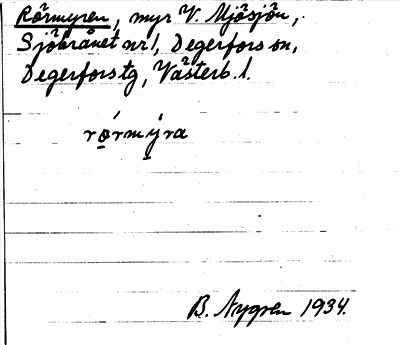 Rörmyren, myr V. Mjösjön,
Sjöbrånet nr 1, Degerfors sn,
Degerfors tg, Västerb. l.
rǫ́rmýra
B. Nygren 1934.